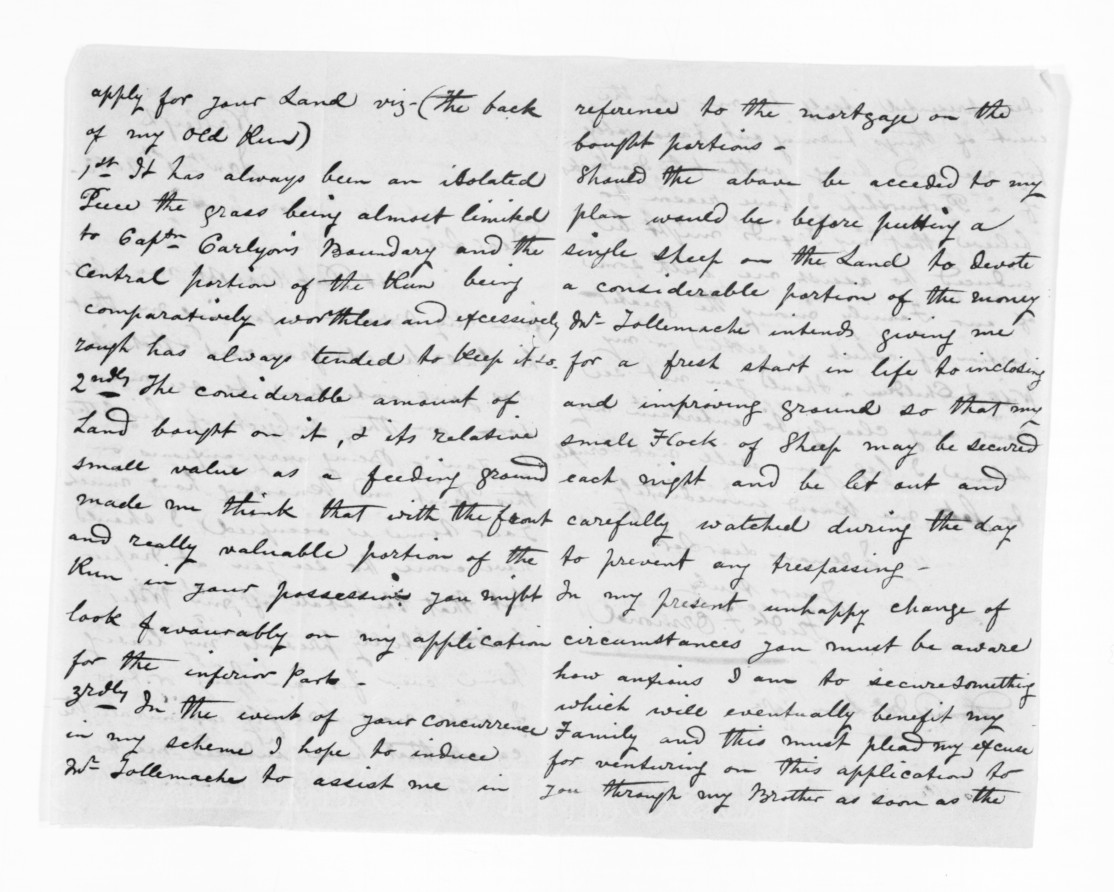 apply for your Land viz - (the back
of my Old Run)
1st It has always been an isolated
Piece the grass being almost limited
to Captn Carlyon's Boundary and the
central portion of the Run being
comparatively worthless and excessively
rough has always tended to keep it so.
2ndly The considerable amount of
Land bought on it, & its relative
small value as a feeding ground
made me think that with the front
and really valuable portion of the
Run in your possession you might
look favourably on my application
for the inferior Part -
3rdly In the event of your concurrence
in my scheme I hope to induce
Mr Tollemache to assist me in
reference to the mortgage on the
bought portions -
Should the above be acceded to my
plan would be before putting a
single sheep on the Land to devote
a considerable portion of the money
Mr Tollemache intends giving me
for a fresh start in life to inclosing
and improving ground so that my
small Flock of Sheep may be secured
each night and be let out and
carefully watched during the day
to prevent any trespassing -
In my present unhappy change of
circumstances you must be aware
how anxious I am to secure something
which will eventually benefit my
Family and this must plead my excuse
for venturing on this application to
you through my Brother as soon as the